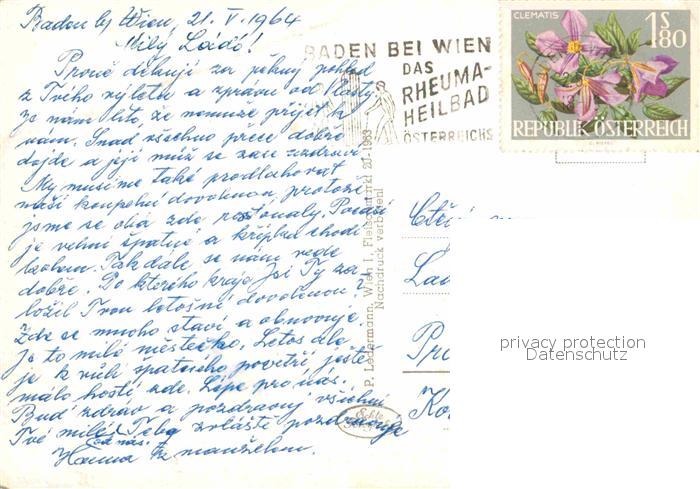 Baden by Wien, 21. V. 1964
Milý Ládo!
Prvně děkuji za pěkný pohled
z Tvého výletu a zprávu od Vlasty
že nám líto, že nemůže přijet k
vám. Snad všechno přece dobře
dojde a její muž se zase uzdraví.
My musíme také prodlužovat
naší koupelní dovolenou, protože
jsme se oba zde rostonaly. Počasí
je velmi špatné a chřipka chodí
kolem. Tak dále se nám vede
dobře. Do kterého kraje jsi Ty za-
ložil Tvou letošní dovolenou?
Zde se mnoho staví a obnovuje.
Je to milé městečko. Letos ale
je k vůli špatnému povětří ještě
málo hostí zde. Lépe pro nás.
Buď zdráv a pozdravuj všichni
Tvé milé. Tebe zvláště pozdravuje
od nás.
Hanna & manželem.
BADEN BEI WIEN
DAS
RHEUMA-
HEILBAD
ÖSTERREICHS
CLEMATIS
1S80
REPUBLIK ÖSTERREICH
P. Ledermann, Wien I., Fleischmarkt 20 - 1963
Nachdruck verboten!
Echte
Ctěný
La
Pr
Ko
privacy protection
Datenschutz